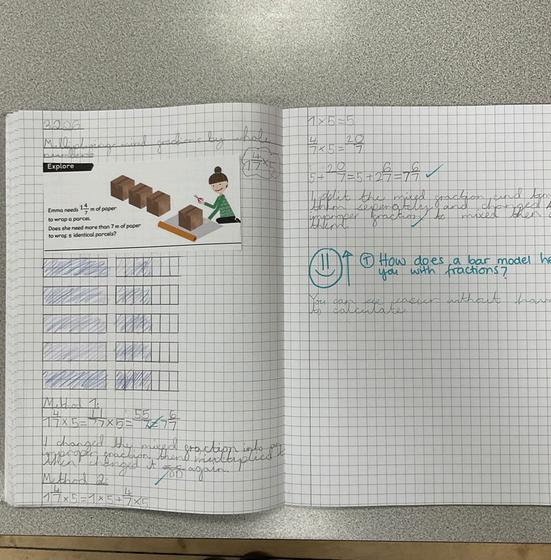 Multiplying mixed fractions by whole
numbers
Explore
Emma needs 1 4/7 m of paper
to wrap a parcel.
Does she need more than 7 m of paper
to wrap 5 identical parcels?
1 4/7 × 5
Method 1:
1 4/7 × 5 = 11/7 × 5 = 55/7 = 7 6/7
I changed the mixed fraction into
improper fraction then multiplied it
then changed it again.
Method 2:
1 4/7 × 5 = 1 × 5 + 4/7 × 5
1 × 5 = 5
4/7 × 5 = 20/7
5 + 20/7 = 5 + 2 6/7 = 7 6/7
I split the mixed fraction and
them seperately and changed
improper fraction to mixed then
them.
T How does a bar model
you with fractions?
You can see easier without
to calculate